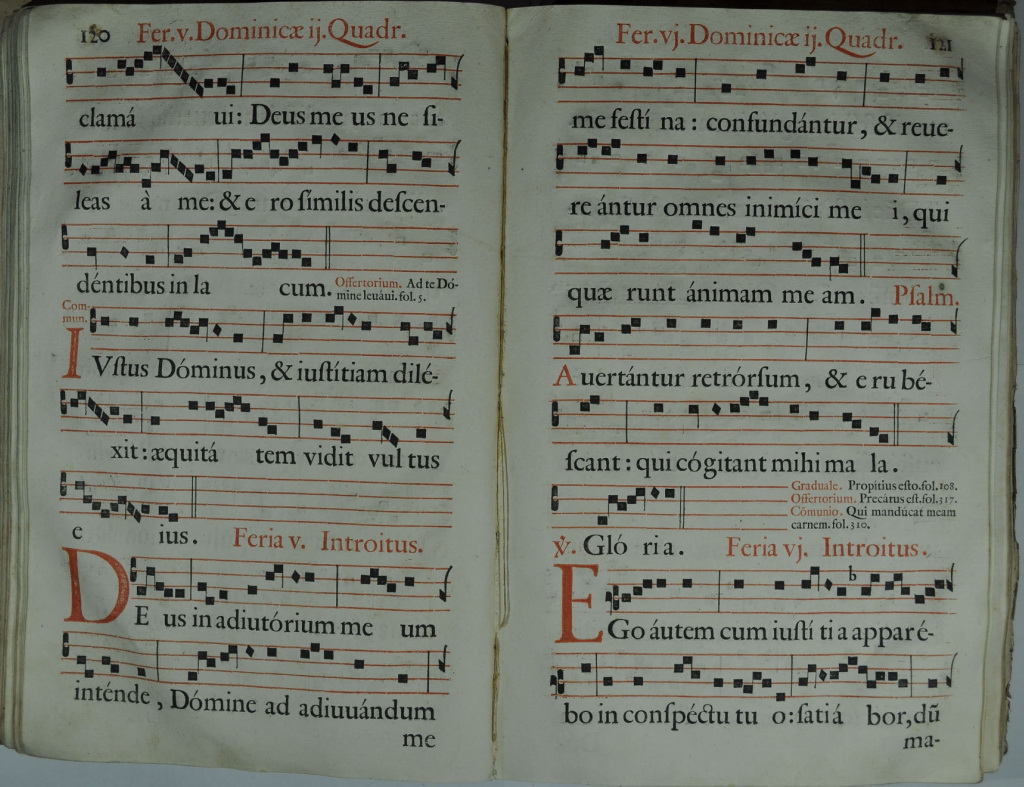 120 Fer.v.Dominicæ ij.Quadr.
clamá ui: Deus me us ne ſi-
leas à me: & e ro ſímilis deſcen-
déntibus in la cum. Offertorium. Ad te Dó-
mine leuáui.fol. 5.
Com-
mun.
IVſtus Dóminus, & iuſtítiam dilé-
xit: æquitá tem vidit vul tus
e ius. Feria v. Introitus.
DE us in adiutórium me um
inténde, Dómine ad adiuuándum
me
Fer.vj.Dominicæ ij.Quadr. 121
me feſtí na: confundántur, & reue-
re ántur omnes inimíci me i, qui
quæ runt ánimam me am. Pſalm.
Auertántur retrórſum, & e ru bé-
ſcant: qui cógitant mihi ma la.
Graduale. Propitius eſto.fol.108.
Offertorium. Precátus eſt.fol.317.
Cõmunio. Qui mandúcat meam
carnem.fol.310.
℣. Gló ria. Feria vj. Introitus.
b
EGo áutem cum iuſti ti a appar é-
bo in conſpéctu tu o: ſatiá bor, dũ
ma-